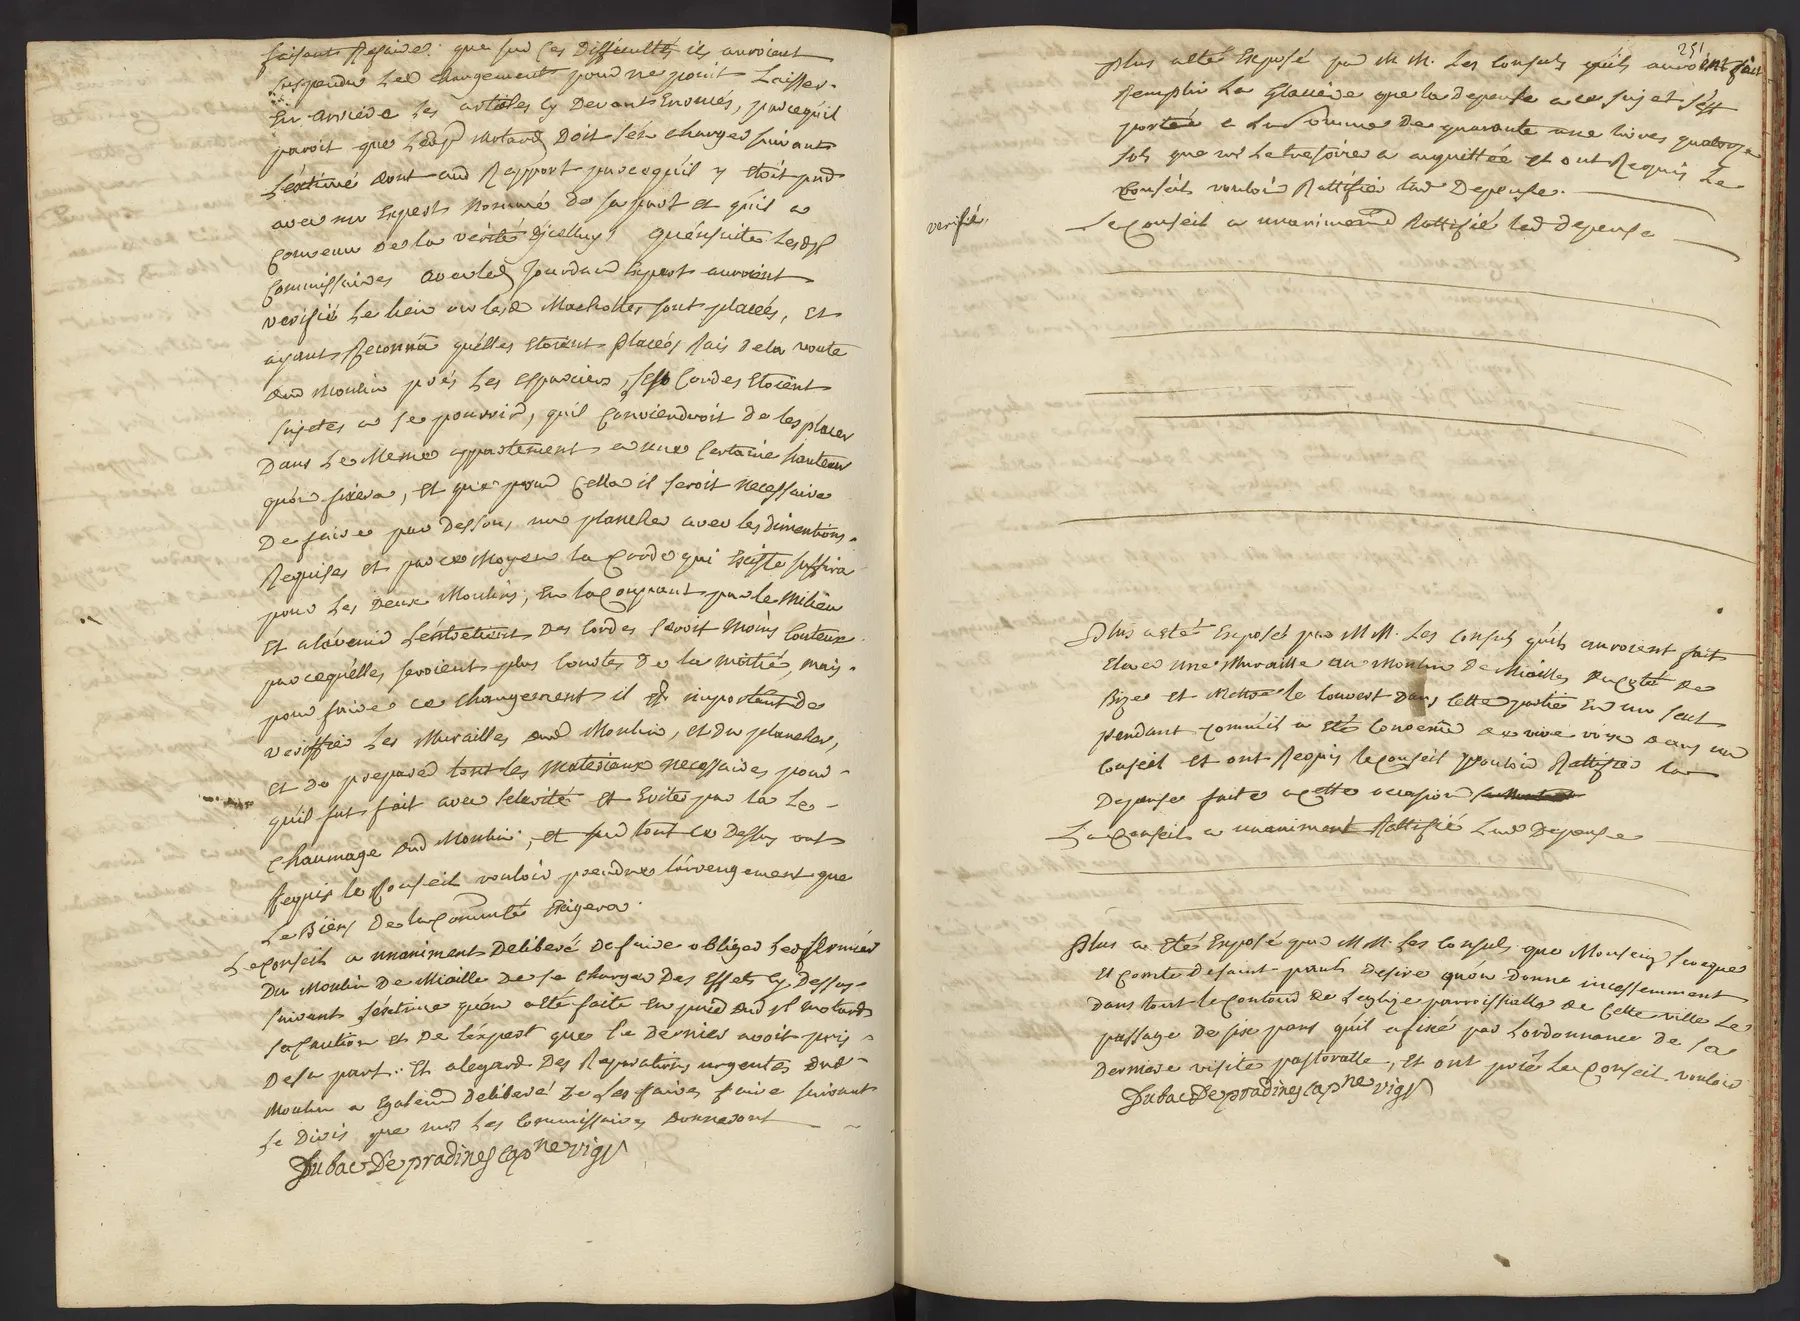 faisant Refaire. que sur ces Difficultés ils auroient
suspendu Led changement pour ne point Laisser
En arriere Les articles cy Devant Enoncés, parcequil
paroit que Led Sr motard Doit sen charger suivant
Lextimé dont aud Rapport parcequil y Etoit pnt
avec un Expert Nommé De sa part et quil a
Convenu De la verité Dicelluy, quensuite Lesd Srs
Commissaires avec led Jourdan Expert auroient
verifié Le lieu ou lesd Machottes sont placés, Et
ayant Reconnu quelles Etoient placés Rais de la voute
dud Moulin prés Les Espaciers, ses Cordes Etoient
sujetes a se pourrir, quil Conviendroit De les placer
Dans Le Meme appartement a une Certaine hauteur
quon fixera, Et que pour Cella il seroit necessaire
De faire par Dessous, un plancher avec les dimentions
Requises et par ce Moyen la Corde qui Existe suffira
pour Les Deux Moulins, En la Coupant par le Milieu
Et alavenir Lentretient Des Cordes seroit moins Couteux
parcequelles seroient plus Courtes De la moitié, mais
pour faire ce Changement il Est important de
veriffier Les Murailles dud Moulin, et du plancher,
et de preparer tout les materiaux necessaires pour
quil fut fait avec selerité Et Eviter par la Le
Chaumage dud Moulin, et sur tout ce Dessus ont
Requis le Conseil vouloir prendre larrengement que
Le Biens De la Communté Exigera.
Le Conseil a unaniment Deliberé De faire obliger Led fermier
Du Moulin De Miaille De se Charger Des Effets Cy Dessus
suivant Lextime quen a eté faite En pied dud Sr motard
sa Caution et De Lexpert que Ce Dernier avoit pris
De sa part. Et alegard Des Reparations urgentes dud
Moulin a Egalemt Deliberé De Les faire faire suivant
Le Divis que mrs Les Commissaires Donneront
Dubac De pradines cap ne vigr
251
Plus a eté Exposé par M M. Les Consuls quils auroint fait
Remplir La Glaciere que la Depense a ce sujet sest
portée a La somme De quarante une livres quatorze
sols que mr Le tresorier a acquittée Et ont Requis Le
Conseil vouloir Rattifier lad Depense.
verifié.
Le Conseil a unanimemt Rattifié lad depense
Plus a eté Exposé par M M. Les Consuls quils auroient fait
Elever une Muraille au Moulin De Miailles du Coté De
Bize Et Mettre le Couvert Dans Cette partie En un seul
pendant comme il a Eté Convenu De vive voix dans un
Conseil Et ont Requis le Conseil vouloir Rattifier la
Depense faite a Cette occasion
Le Conseil a unaniment Rattifié Lad Depense
Plus a Eté Exposé par M M. Les Consuls que Monseigr Leveque
Et Comte De saint pauls Desire quon Donne incessemment
Dans tout le Contour de Leglize parroissialle De Cette ville Le
passage De six pans quil a fixé par Lordonnance De sa
Derniere visite pastoralle, Et ont prié Le Conseil vouloir
Dubac De pradines cap ne vigr